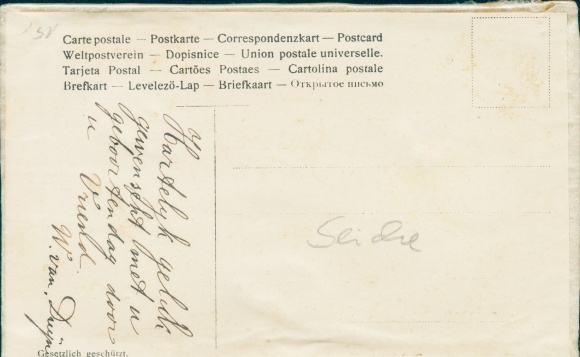 Carte postale — Postkarte — Correspondenzkart — Postcard
Weltpostverein — Dopisnice — Union postale universelle.
Tarjeta Postal — Cartões Postaes — Cartolina postale
Brefkart — Levelező-Lap — Briefkaart — Открытое письмо
Hartelyk geluk
gewenscht met u
geboortendag door
u Vriend
W. van Duyn
Gesetzlich geschützt.